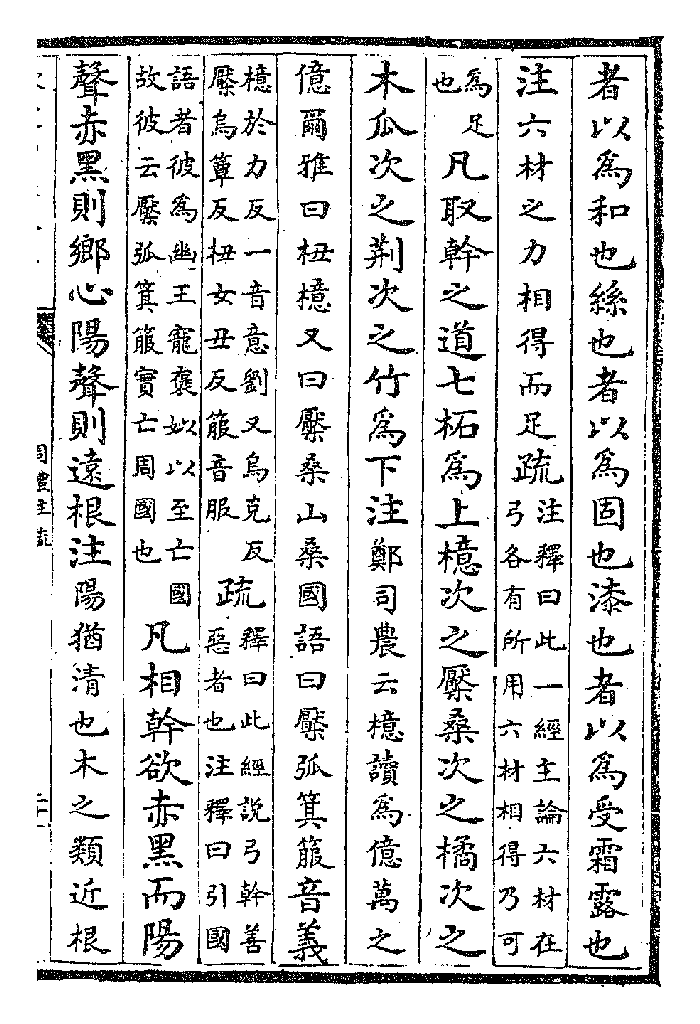 者以爲和也絲也者以爲固也漆也者以爲受霜露也
注六材之力相得而足疏注釋曰此一經主論六材在
弓各有所用六材相得乃可
爲足
也
凡取幹之道七柘爲上檍次之檿桑次之橘次之
木瓜次之荆次之竹爲下注鄭司農云檍讀爲億萬之
億爾雅曰杻檍又曰檿桑山桑國語曰檿弧箕箙音義
檍於力反一音意劉又烏克反
檿烏簟反杻女丑反箙音服
疏釋曰此經說弓幹善
惡者也注釋曰引國
語者彼爲幽王寵褒姒以至亡國
故彼云檿弧箕箙實亡周國也
凡相幹欲赤黑而陽
聲赤黑則鄉心陽聲則遠根注陽猶清也木之類近根
周禮注疏